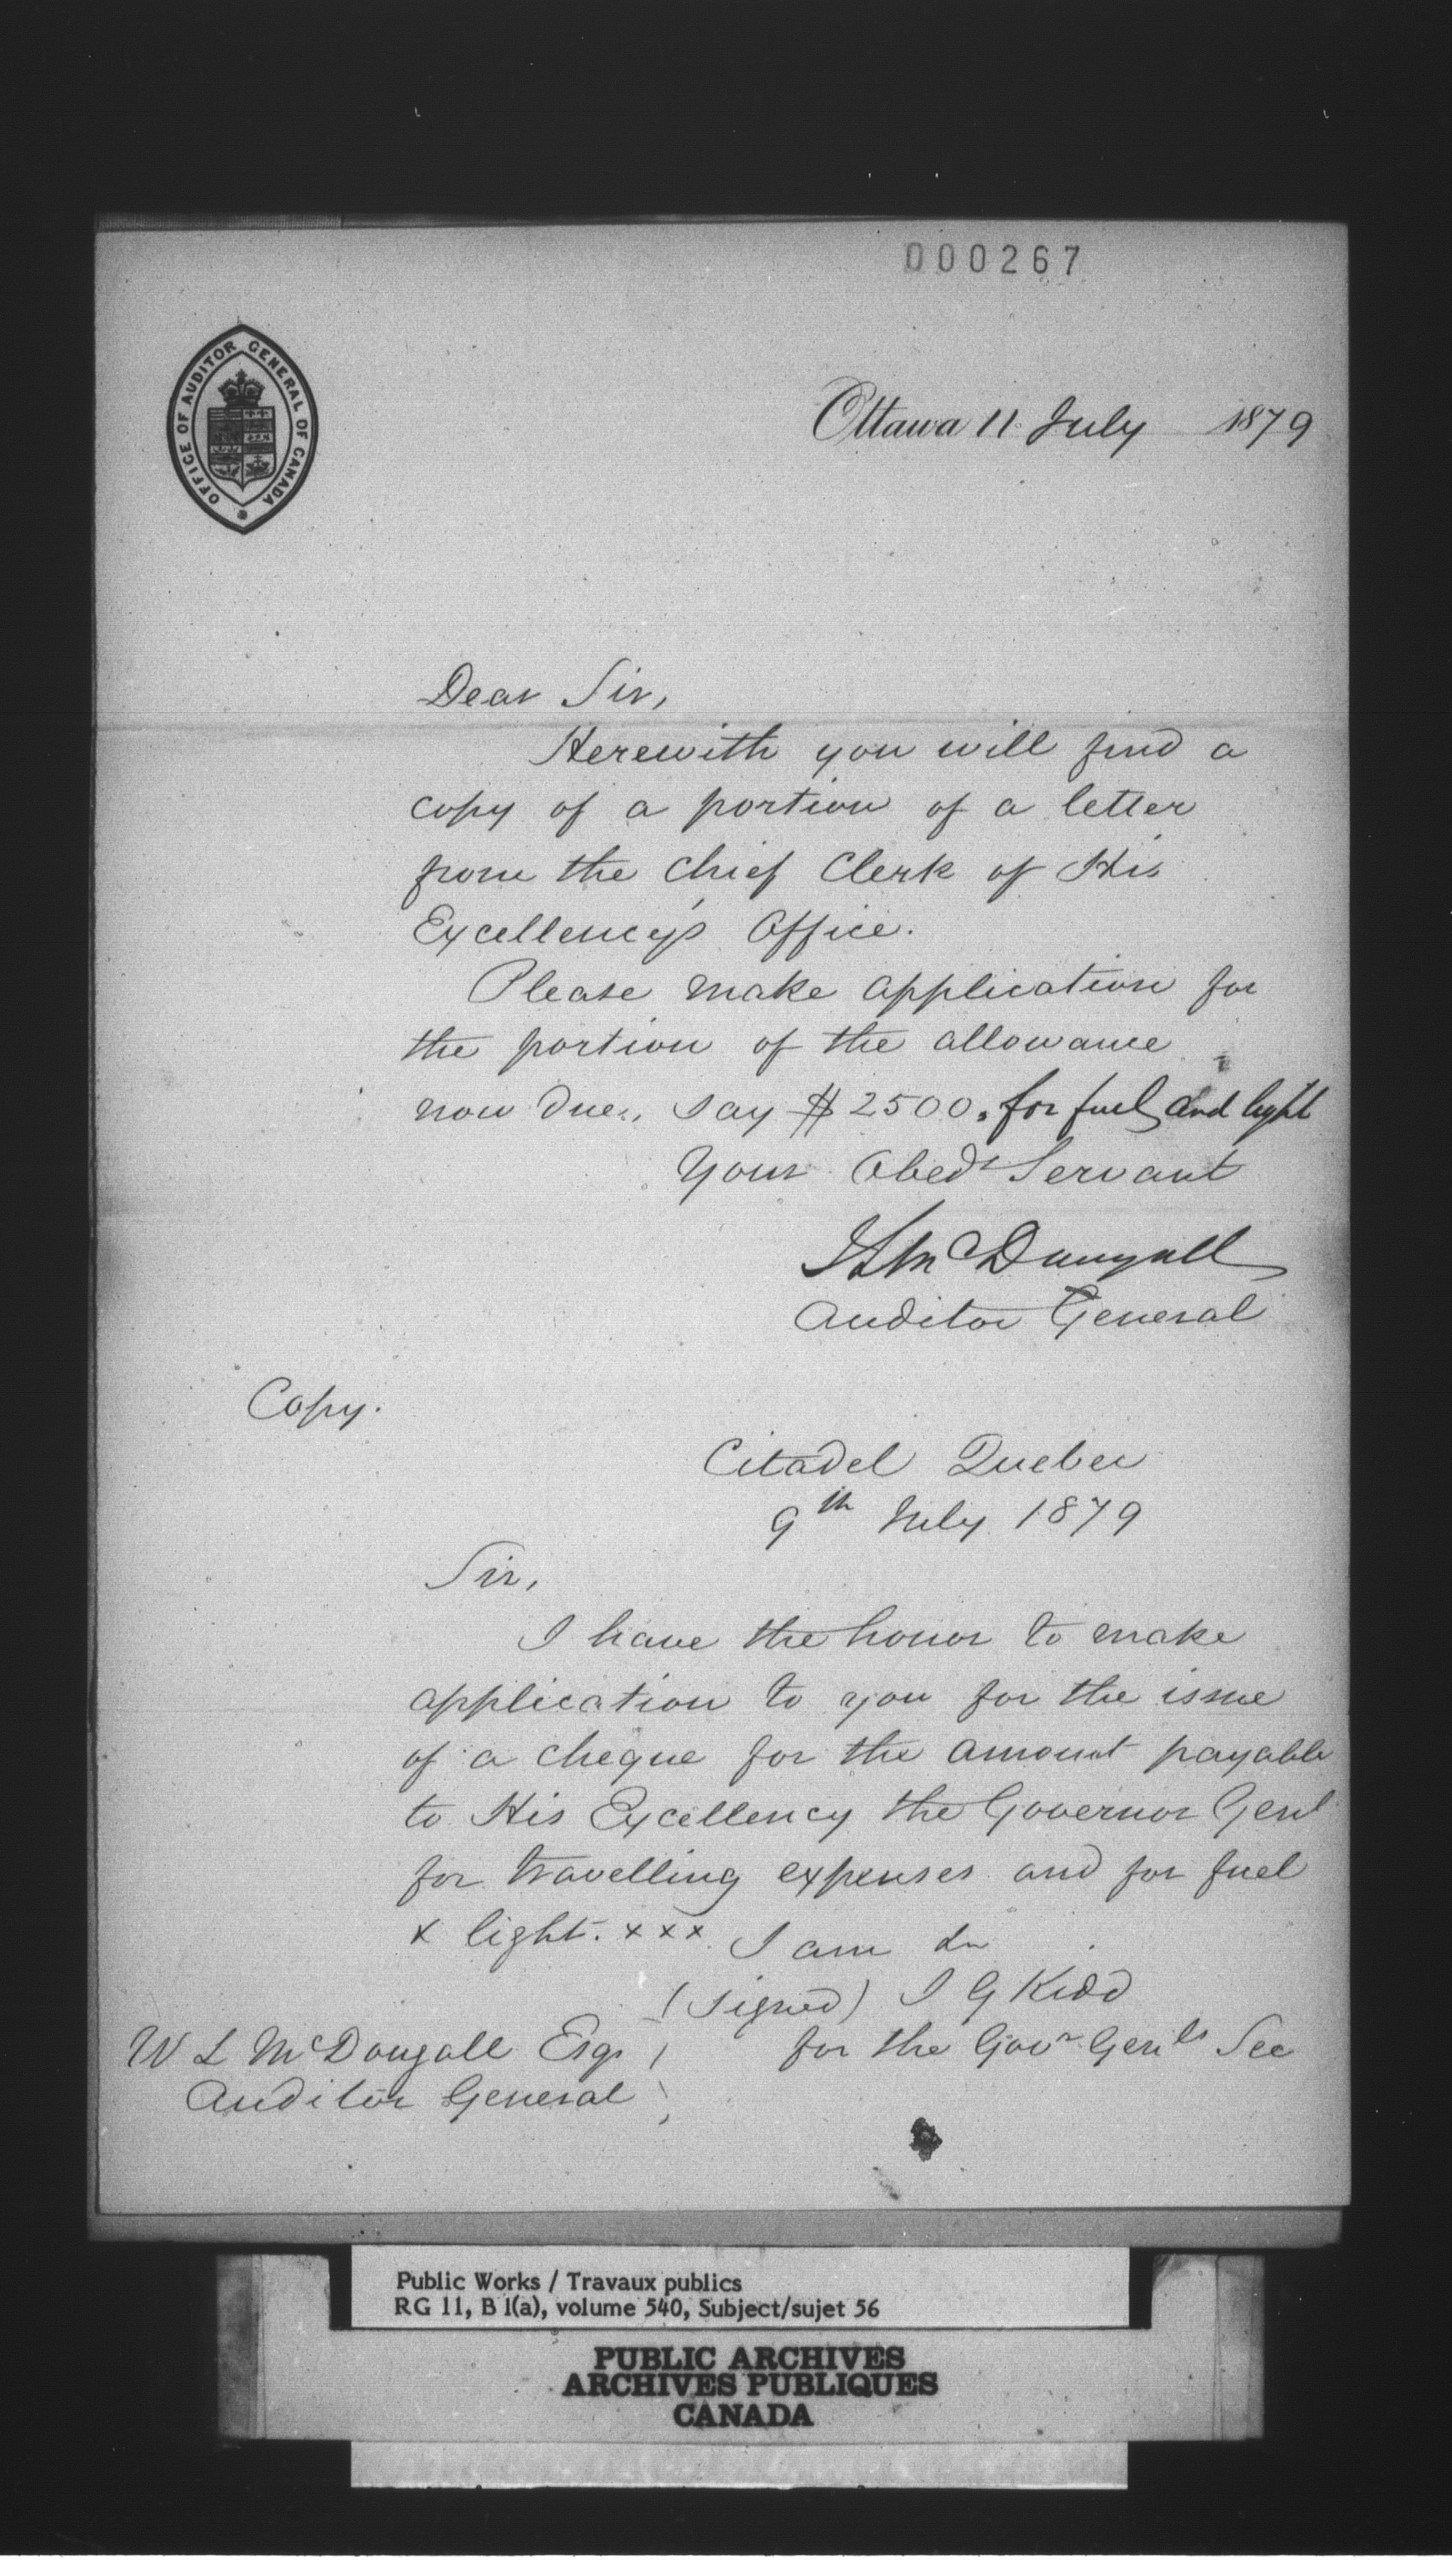 000267
OFFICE OF AUDITOR GENERAL OF CANADA
Ottawa 11 July 1879
Dear Sir,
Herewith you will find a
copy of a portion of a letter
from the Chief Clerk of His
Excellency's Office.
Please make application for
the portion of the allowance
now due, say $2500. for fuel and light
Your Obedt Servant
J L McDougall
Auditor General
Copy.
Citadel Quebec
9th July 1879
Sir,
I have the honor to make
application to you for the issue
of a cheque for the amount payable
to His Excellency the Governor Genl
for travelling expenses and for fuel
& light. x x x I am &c
(signed) J G Kidd
for the Govr Genls Sec
W L McDougall Esqr
Auditor General
Public Works / Travaux publics
RG 11, B 1(a), volume 540, Subject/sujet 56
PUBLIC ARCHIVES
ARCHIVES PUBLIQUES
CANADA